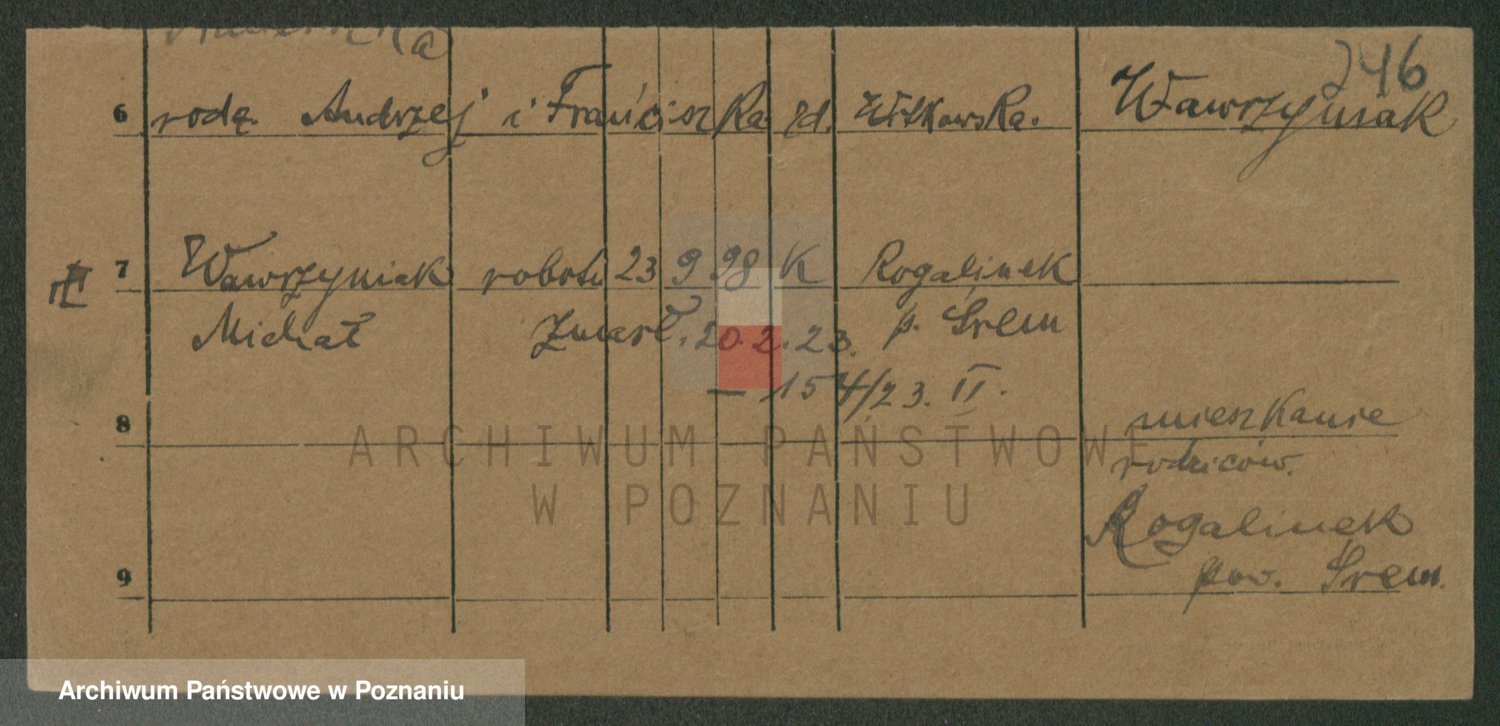 246
6 rodz. Andrzej i Franciszka zd. Witkowska. Wawrzyniak
7 Wawrzyniak robotn 23 9 98 K Rogalinek
Michał Zmarł. 20.2.23. p. Śrem
— 154/23. II.
8 mieszkanie
rodziców.
ARCHIWUM PAŃSTWOWE
W POZNANIU
Rogalinek
9 pow. Śrem.
Archiwum Państwowe w Poznaniu